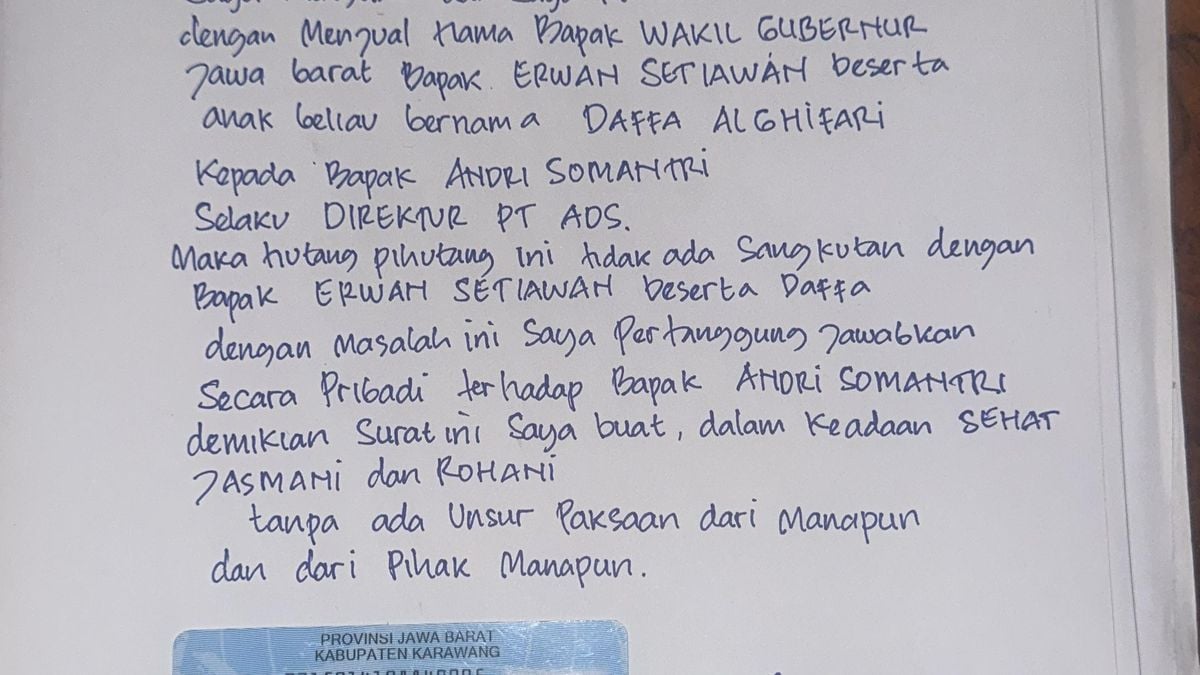 dengan Menjual Nama Bapak WAKIL GUBERNUR
Jawa barat Bapak ERWAN SETIAWAN beserta
anak beliau bernama DAFFA ALGHIFARI
Kepada Bapak ANDRI SOMANTRI
Selaku DIREKTUR PT ADS.
Maka hutang pihutang ini tidak ada Sangkutan dengan
Bapak ERWAN SETIAWAN beserta Daffa
dengan Masalah ini Saya Pertanggung Jawabkan
Secara Pribadi terhadap Bapak ANDRI SOMANTRI
demikian Surat ini Saya buat, dalam Keadaan SEHAT
JASMANI dan ROHANI
tanpa ada Unsur Paksaan dari Manapun
dan dari Pihak Manapun.
PROVINSI JAWA BARAT
KABUPATEN KARAWANG